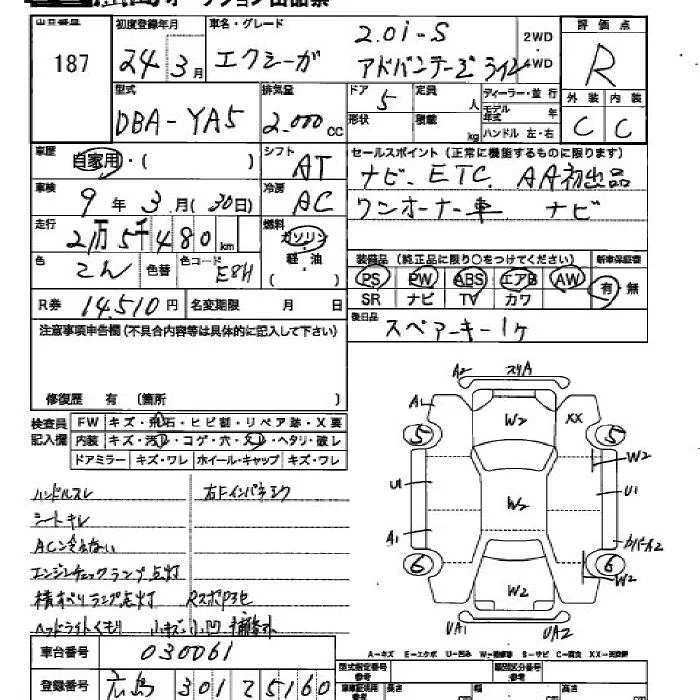 オークション出品票
出品番号 初度登録年月 車名・グレード 2.0i-S 2WD 評価点
187 24年3月 エクシーガ アドバンテージライン 4WD R
型式 排気量 ドア 定員 ディーラー・並行 外装 内装
DBA-YA5 2,000cc 5 人 モデル年式 年 C C
形状 積載 kg ハンドル 左・右
車歴 自家用・( ) シフト AT セールスポイント (正常に機能するものに限ります)
ナビ. ETC. AA初出品
車検 9年3月(30日) 冷房 AC ワンオーナー車 ナビ
走行 2万5千480km 燃料 ガソリン・軽油 ( )
装備品 (純正品に限り○をつけてください) 新車保証書
色 こん 色替 色コード E8H PS PW ABS エアB AW 有 無
SR ナビ TV カワ
R券 14,510円 名変期限 月 日
後日品 スペアーキー1ケ
注意事項申告欄(不具合内容等は具体的に記入して下さい)
修復歴 有 (箇所 )
検査員記入欄 FW キズ・飛石・ヒビ割・リペア跡・X要
内装 キズ・汚レ・コゲ・穴・スレ・ヘタリ・破レ
ドアミラー キズ・ワレ ホイール・キャップ キズ・ワレ
ハンドルスレ 右Fインパネヨワ
シートキレ
ACン冷えない
エンジンチェックランプ点灯
横すべりランプ点灯
ヘッドライトくもり 小キズ 小凹 補修跡
A2 スリA
A1 W2 XX
5 5
W2
U1 W2 U1
A1 カバーA2
6 6
W2 W2
UA1 UA2
A-キズ E-エクボ U-凹み W-補修跡 S-サビ C-腐食 XX-交換歴
車台番号 030061 型式指定番号 参考 類別区分番号 参考
登録番号 広島 301 て 5160 長さ cm 幅 高さ